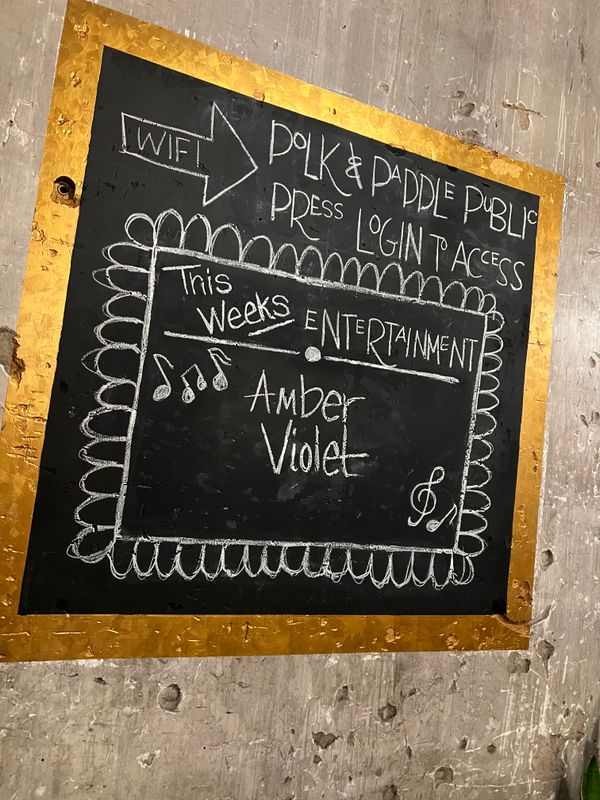 WIFI
POLK & PADDLE PUBLIC
PRESS LOGIN TO ACCESS
This
Weeks ENTERTAINMENT
Amber
Violet